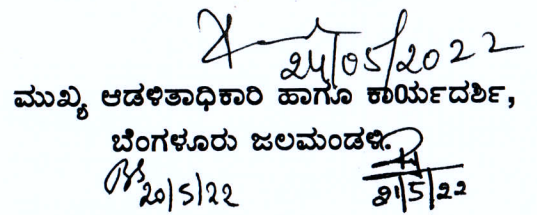 24/05/2022
ಮುಖ್ಯ ಆಡಳಿತಾಧಿಕಾರಿ ಹಾಗೂ ಕಾರ್ಯದರ್ಶಿ,
ಬೆಂಗಳೂರು ಜಲಮಂಡಳಿ.
20/5/22 21/5/22